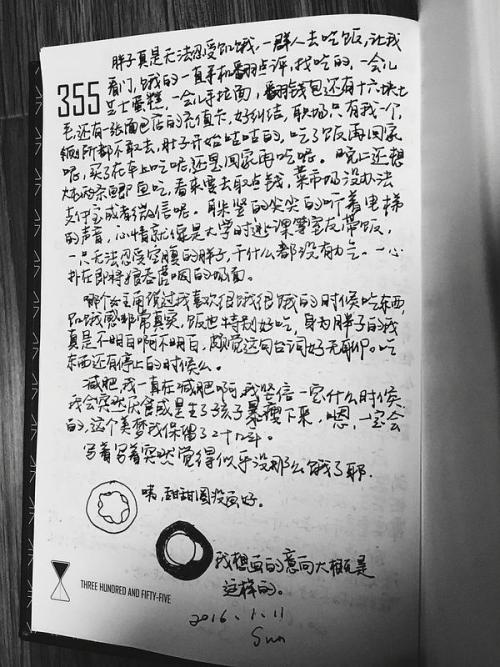 胖子真是无法忍受饥饿,一群人去吃饭,让我
看门,饿的一直手机翻点评,找吃的,一会儿
355
芝士蛋糕,一会儿手拉面,翻翻钱包还有十六块七
毛,还有一张面包店的充值卡,好纠结,职场只有我一个,
厕所都不敢去,肚子开始哇哇的,吃了饭再回家
呢,买了在车上吃呢,还是回家再吃呢。晚上还想
大两条鱼吃,看来要去取点钱,菜市场没办法
支付宝或者微信呢。耳朵竖的尖尖的听着电梯
的声音,心情就像是大学时逃课等室友带饭,
一只无法忍受空腹的胖子,干什么都没有力气。一心
扑在即将狼吞虎咽的画面。
哪个女主角说过我喜欢很饿很饿的时候吃东西,
饥饿感非常真实,饭也特别好吃,身为胖子的我
真是不明白啊不明白,颇觉这句台词好无聊。吃
东西还有停止的时候么。
减肥,我一直在减肥啊,我坚信一定什么时候
我会突然厌食或是生了孩子暴瘦下来,嗯,一定会
的,这个美梦我保留了二十几年。
写着写着突然觉得似乎没那么饿了耶。
咦,甜甜圈没画好。
我想画的意向大概是
这样的。
THREE HUNDRED AND FIFTY-FIVE
2016.1.11
Sun